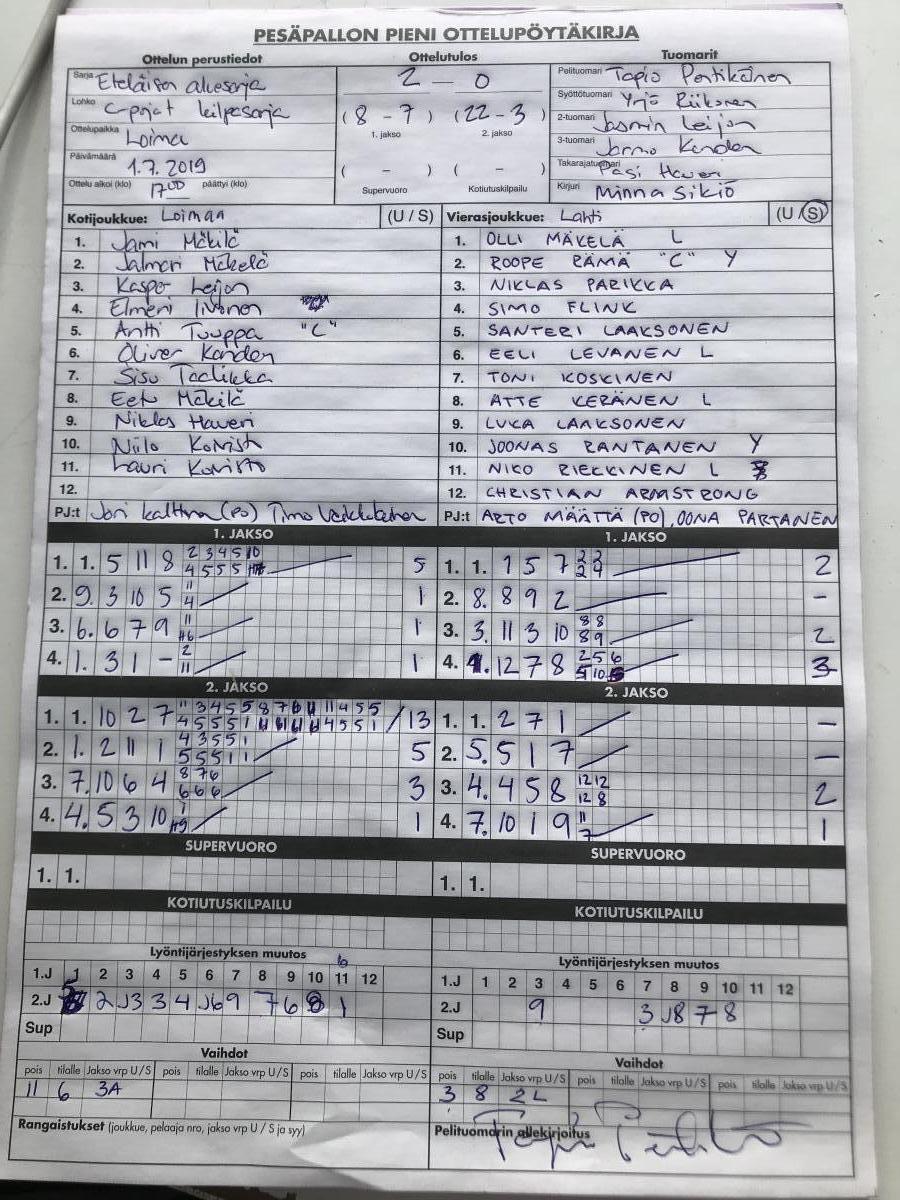 PESÄPALLON PIENI OTTELUPÖYTÄKIRJA
Ottelun perustiedot Ottelutulos Tuomarit
Sarja Eteläisen aluesarja 2 – 0 Pelituomari Tapio Pentikäinen
Lohko C-pojat kilpasarja (8 – 7) (22 – 3) Syöttötuomari Yrjö Riikonen
1. jakso 2. jakso 2-tuomari Jasmin Leijon
Ottelupaikka Loimaa 3-tuomari Jarmo Kanden
Päivämäärä 1.7.2019 ( – ) ( – ) Takarajatuomari Pasi Haveri
Ottelu alkoi (klo) 17⁰⁰ päättyi (klo) Supervuoro Kotiutuskilpailu Kirjuri Minna Sikiö
Kotijoukkue: Loimaa (U / S) Vierasjoukkue: Lahti (U / S)
1. Jami Mäkilä 1. OLLI MÄKELÄ L
2. Jalmari Mäkelä 2. ROOPE RÄMÄ "C" Y
3. Kasper Leijon 3. NIKLAS PARIKKA
4. Elmeri Iivonen 4. SIMO FLINK
5. Antti Tuuppa "C" 5. SANTERI LAAKSONEN
6. Oliver Kanden 6. EELI LEVANEN L
7. Sisu 7. TONI KOSKINEN
8. Eetu Mäkilä 8. ATTE KERÄNEN L
9. Niklas Haveri 9. LUKA LAAKSONEN
10. Niilo Koivisto 10. JOONAS RANTANEN Y
11. Lauri Koivisto 11. NIKO RIEKKINEN L
12. 12. CHRISTIAN ARMSTRONG
PJ:t Jori (PO) Timo PJ:t ARTO MÄÄTTÄ (PO), OONA PARTANEN
1. JAKSO 1. JAKSO
2 3 4 5 10 2 3
1. 1. 5 11 8 4 5 5 5 5 1. 1. 1 5 7 2 4 2
11
2. 9. 3 10 5 4 1 2. 8. 8 9 2 –
11 8 8
3. 6. 6 7 9 H6 1 3. 3. 11 3 10 8 9 2
2 2 5 6
4. 1. 3 1 – 11 1 4. 1. 12 7 8 10 3
2. JAKSO 2. JAKSO
11 3 4 5 5 8 7 6 11 11 4 5 5
1. 1. 10 2 7 4 5 5 5 1 4 5 5 1 13 1. 1. 2 7 1 –
4 3 5 5 1
2. 1. 2 11 1 5 5 5 1 1 5 2. 5. 5 1 7 –
8 7 6 12 12
3. 7. 10 6 4 6 6 6 3 3. 4. 4 5 8 12 8 2
1 11
4. 4. 5 3 10 H9 1 4. 7. 10 1 9 7 1
SUPERVUORO SUPERVUORO
1. 1. 1. 1.
KOTIUTUSKILPAILU KOTIUTUSKILPAILU
Lyöntijärjestyksen muutos Lyöntijärjestyksen muutos
6
1.J 1 2 3 4 5 6 7 8 9 10 11 12 1.J 1 2 3 4 5 6 7 8 9 10 11 12
2.J 2 J3 3 4 J6 9 7 6 8 1 2.J 9 3 J8 7 8
Sup Sup
Vaihdot Vaihdot
pois tilalle Jakso vrp U / S pois tilalle Jakso vrp U / S pois tilalle Jakso vrp U / S pois tilalle Jakso vrp U / S pois tilalle Jakso vrp U / S pois tilalle Jakso vrp U / S
11 6 3A 3 8 2L
Rangaistukset (joukkue, pelaaja nro, jakso vrp U / S ja syy) Pelituomarin allekirjoitus